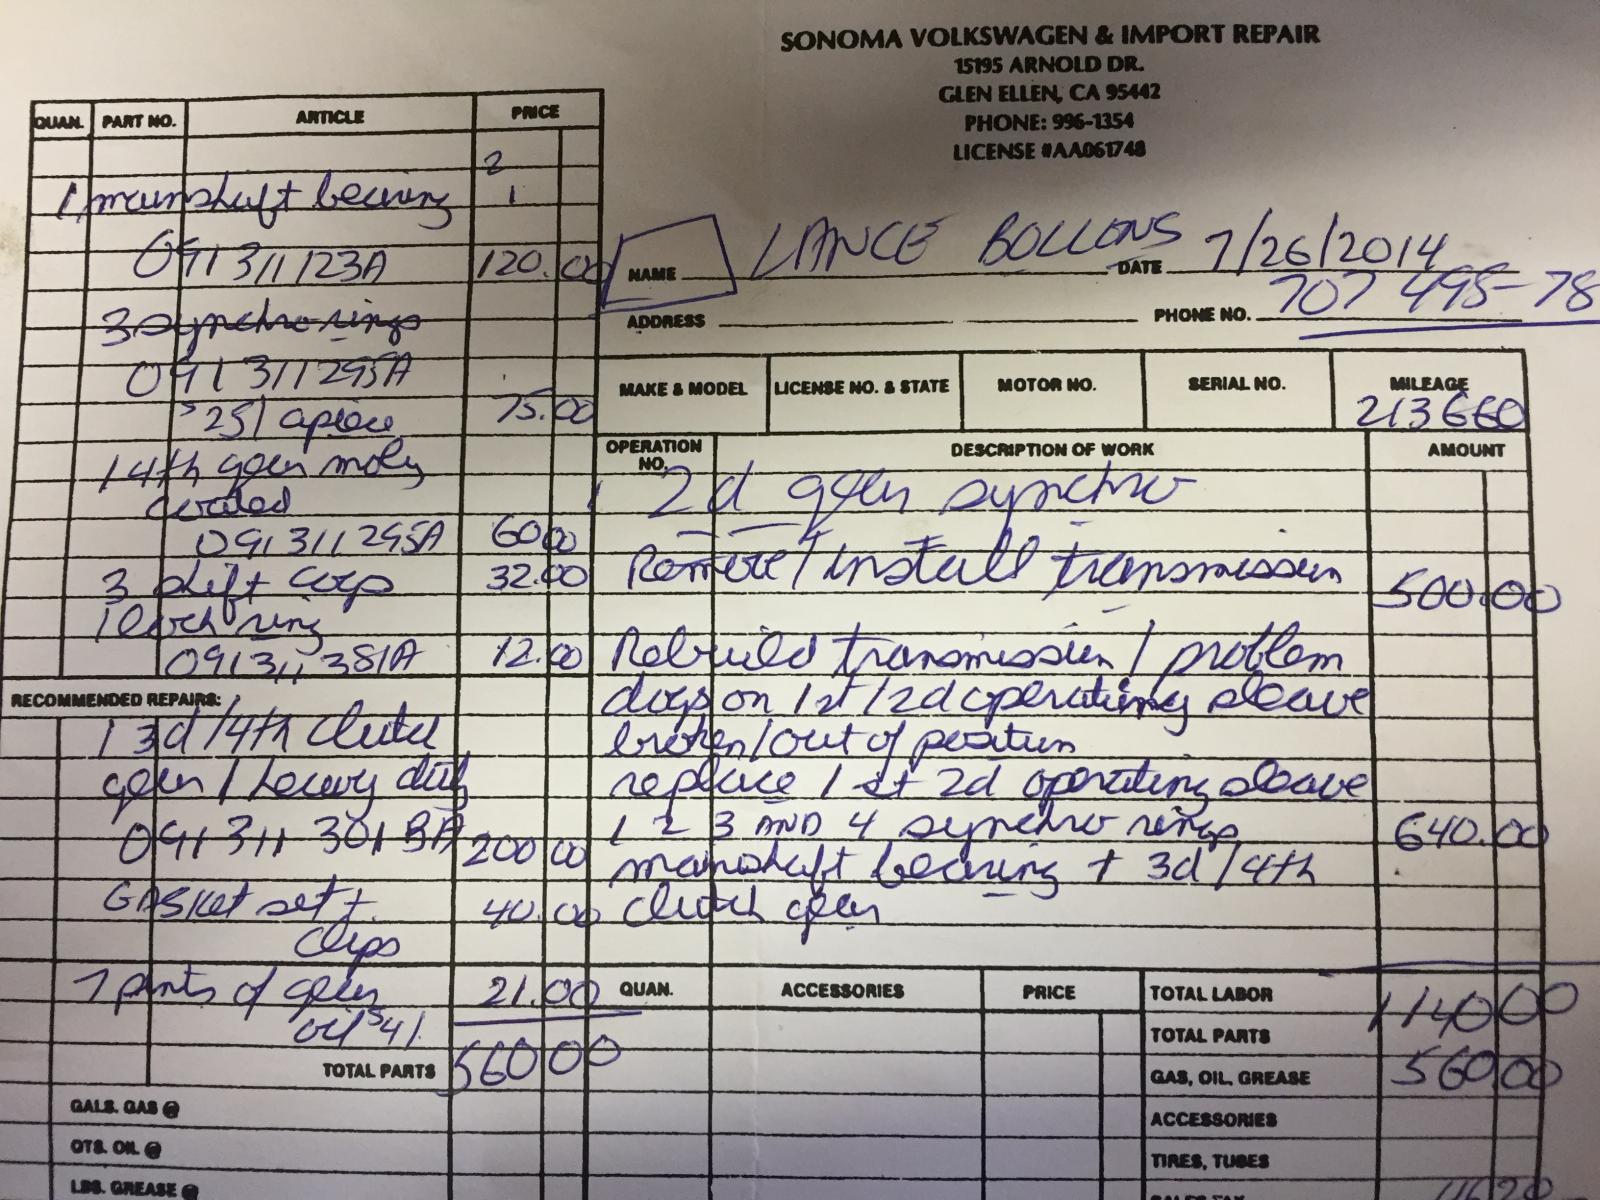 SONOMA VOLKSWAGEN & IMPORT REPAIR
15195 ARNOLD DR.
GLEN ELLEN, CA 95442
PHONE: 996-1354
LICENSE #AA061748
QUAN. PART NO. ARTICLE PRICE
2
1 mainshaft bearing 1
091311123A 120.00
3 synchro rings
091311295A
$25/ apiece 75.00
1 4th gear moly
coated
091311295A 60.00
3 shift caps 32.00
1 lock ring
091311381A 12.00
RECOMMENDED REPAIRS:
1 3d/4th clutch
gear/heavy duty
091311301BA 200.00
GASKET set +
clips 40.00
7 pints of gear 21.00
oil
TOTAL PARTS 560.00
GALS. GAS @
QTS. OIL @
LBS. GREASE @
NAME LANCE BOLLONS DATE 7/26/2014
ADDRESS PHONE NO. 707 495-78
MAKE & MODEL LICENSE NO. & STATE MOTOR NO. SERIAL NO. MILEAGE
213660
OPERATION NO. DESCRIPTION OF WORK AMOUNT
2d gear synchro
Remove/Install transmission 500.00
Rebuild transmission/problem
dogs on 1st/2d operating sleave
broken/out of position
replace 1st 2d operating sleave
1 2 3 AND 4 synchro rings 640.00
mainshaft bearing + 3d/4th
clutch gear
QUAN. ACCESSORIES PRICE
TOTAL LABOR 1140.00
TOTAL PARTS
GAS, OIL, GREASE 560.00
ACCESSORIES
TIRES, TUBES
SALES TAX